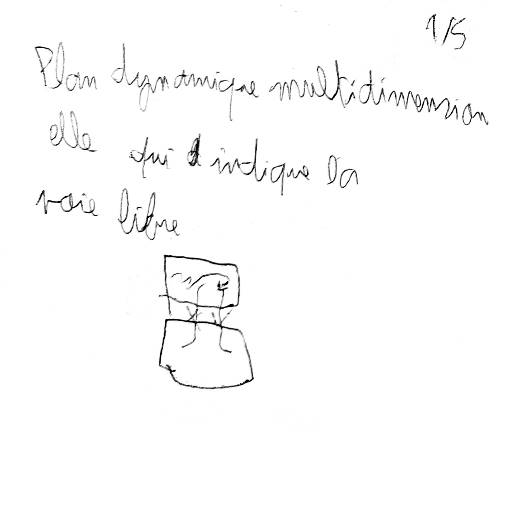 1/5
Plan dynamique multidimension
elle qui indique la
voie libre